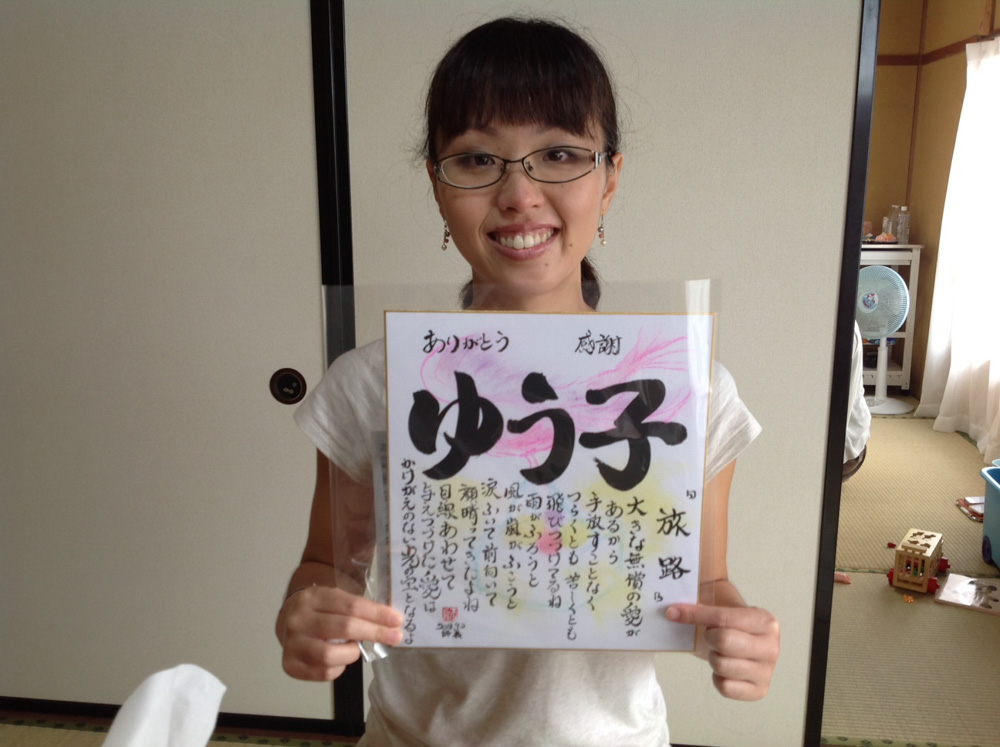 ありがとう
感謝
ゆう子
「旅路」
大きな無償の愛が
あるから
手放すことなく
つらくとも 苦しくとも
飛びつづけてるね
雨がふろうと
風が嵐がふこうと
涙ふいて前向いて
顔晴ってきたよね
目線あわせて
与えつづけた愛は
かけがえのない
となるよ